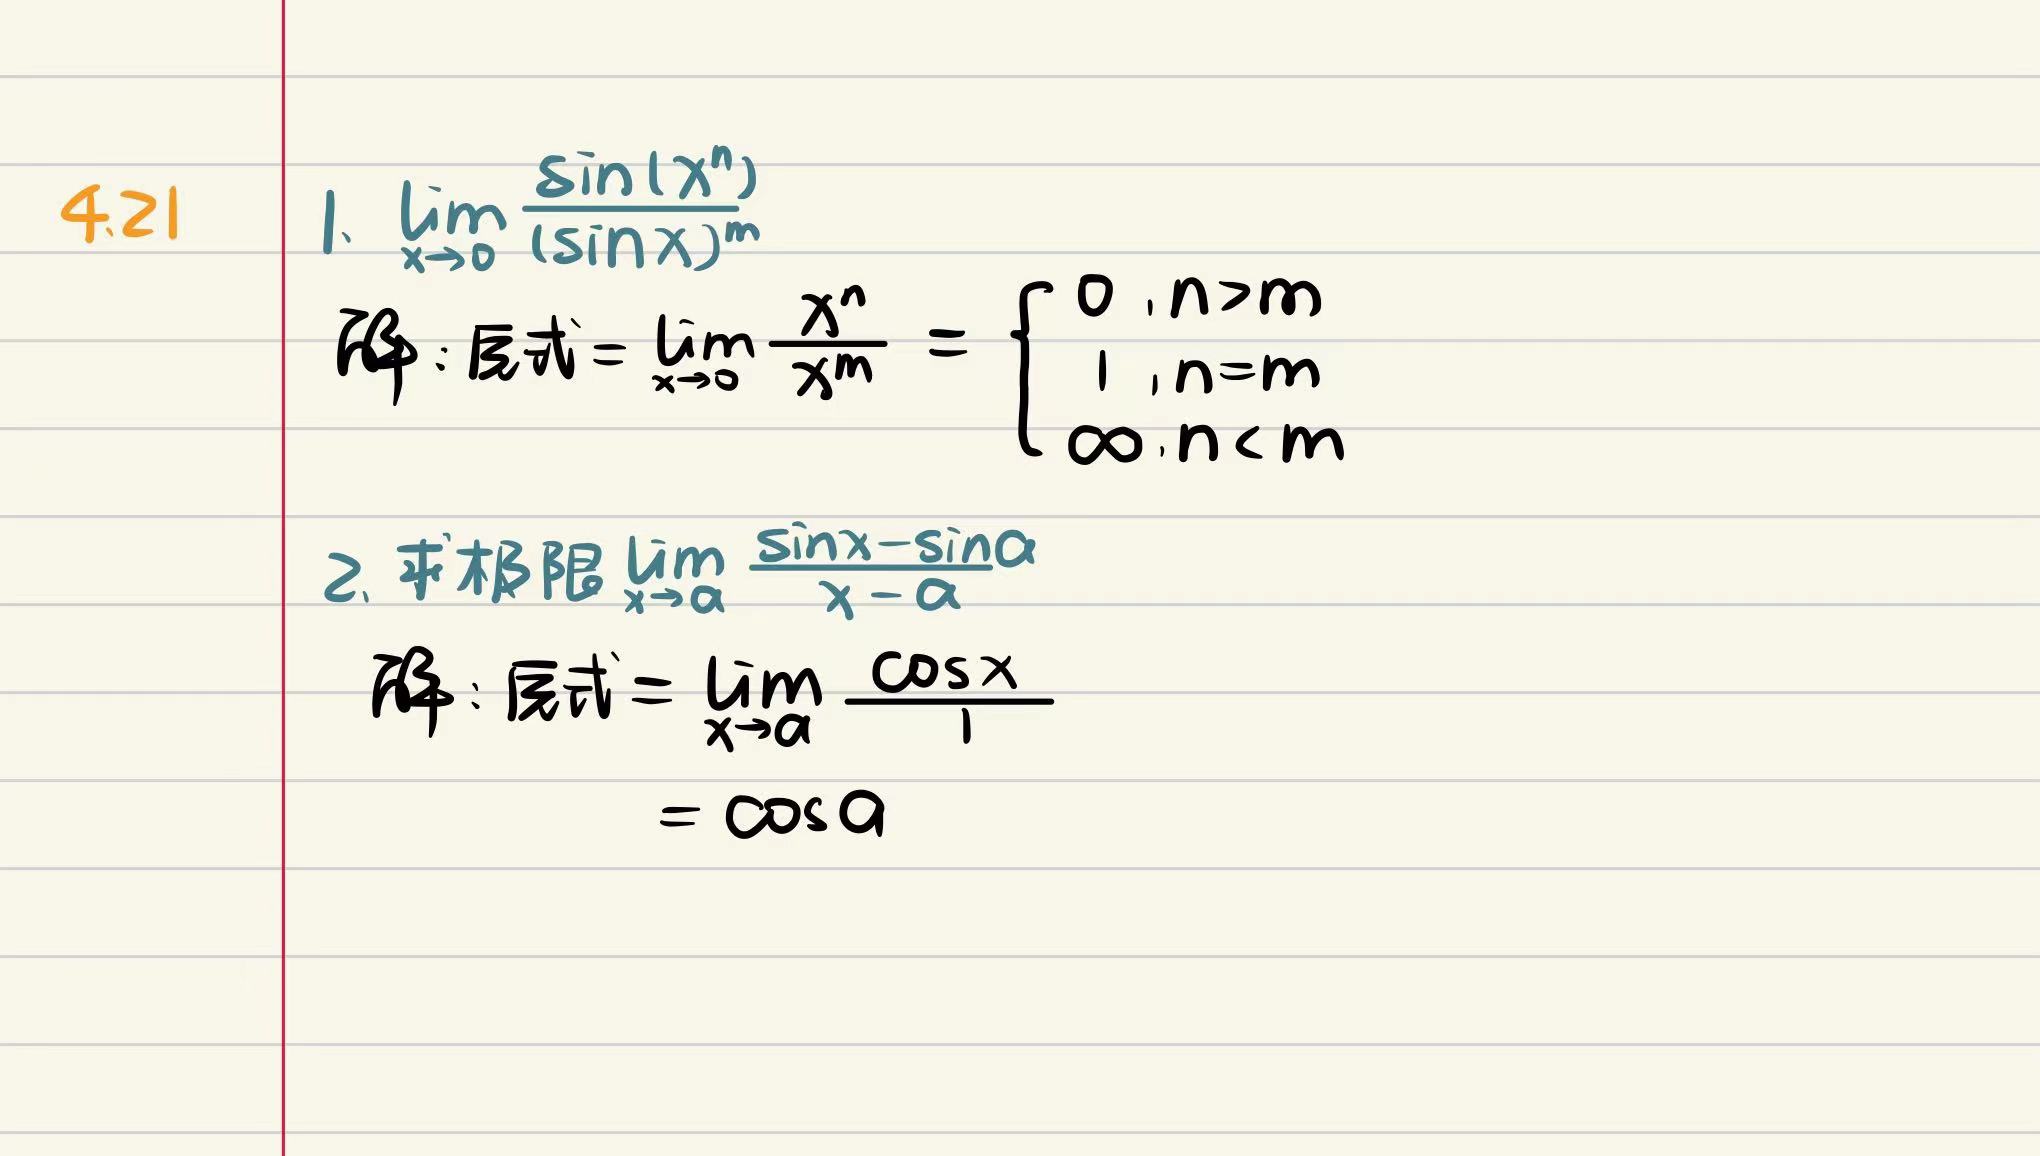 4.21
1、lim x→0 sin(xⁿ)/(sinx)ᵐ
解：原式 = lim x→0 xⁿ/xᵐ = { 0，n>m
1，n=m
∞，n<m
2、求极限 lim x→a (sinx-sina)/(x-a)
解：原式 = lim x→a cosx/1
= cosa